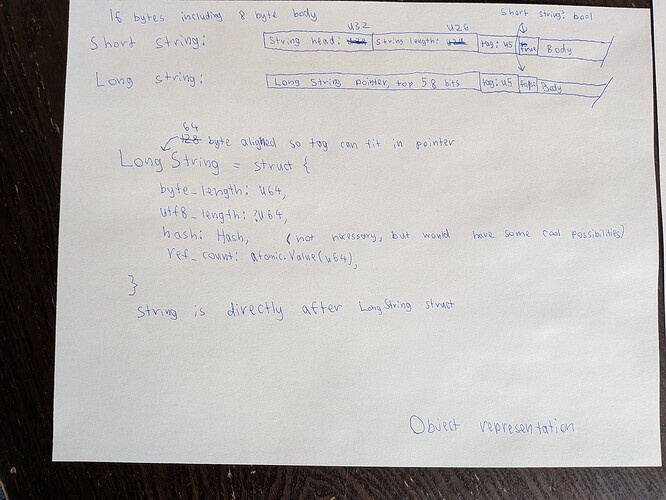 16 bytes including 8 byte body
Short string: bool
u32 u26
Short string: String head: String length: tag: u5 true Body
Long string: Long String pointer, top 58 bits tag: u5 false Body
64
128 byte aligned so tag can fit in pointer
Long String = struct {
byte_length: u64,
utf8_length: ?u64,
hash: Hash, (not necessary, but would have some cool possibilities)
ref_count: atomic.Value(u64),
}
String is directly after LongString struct
Object representation